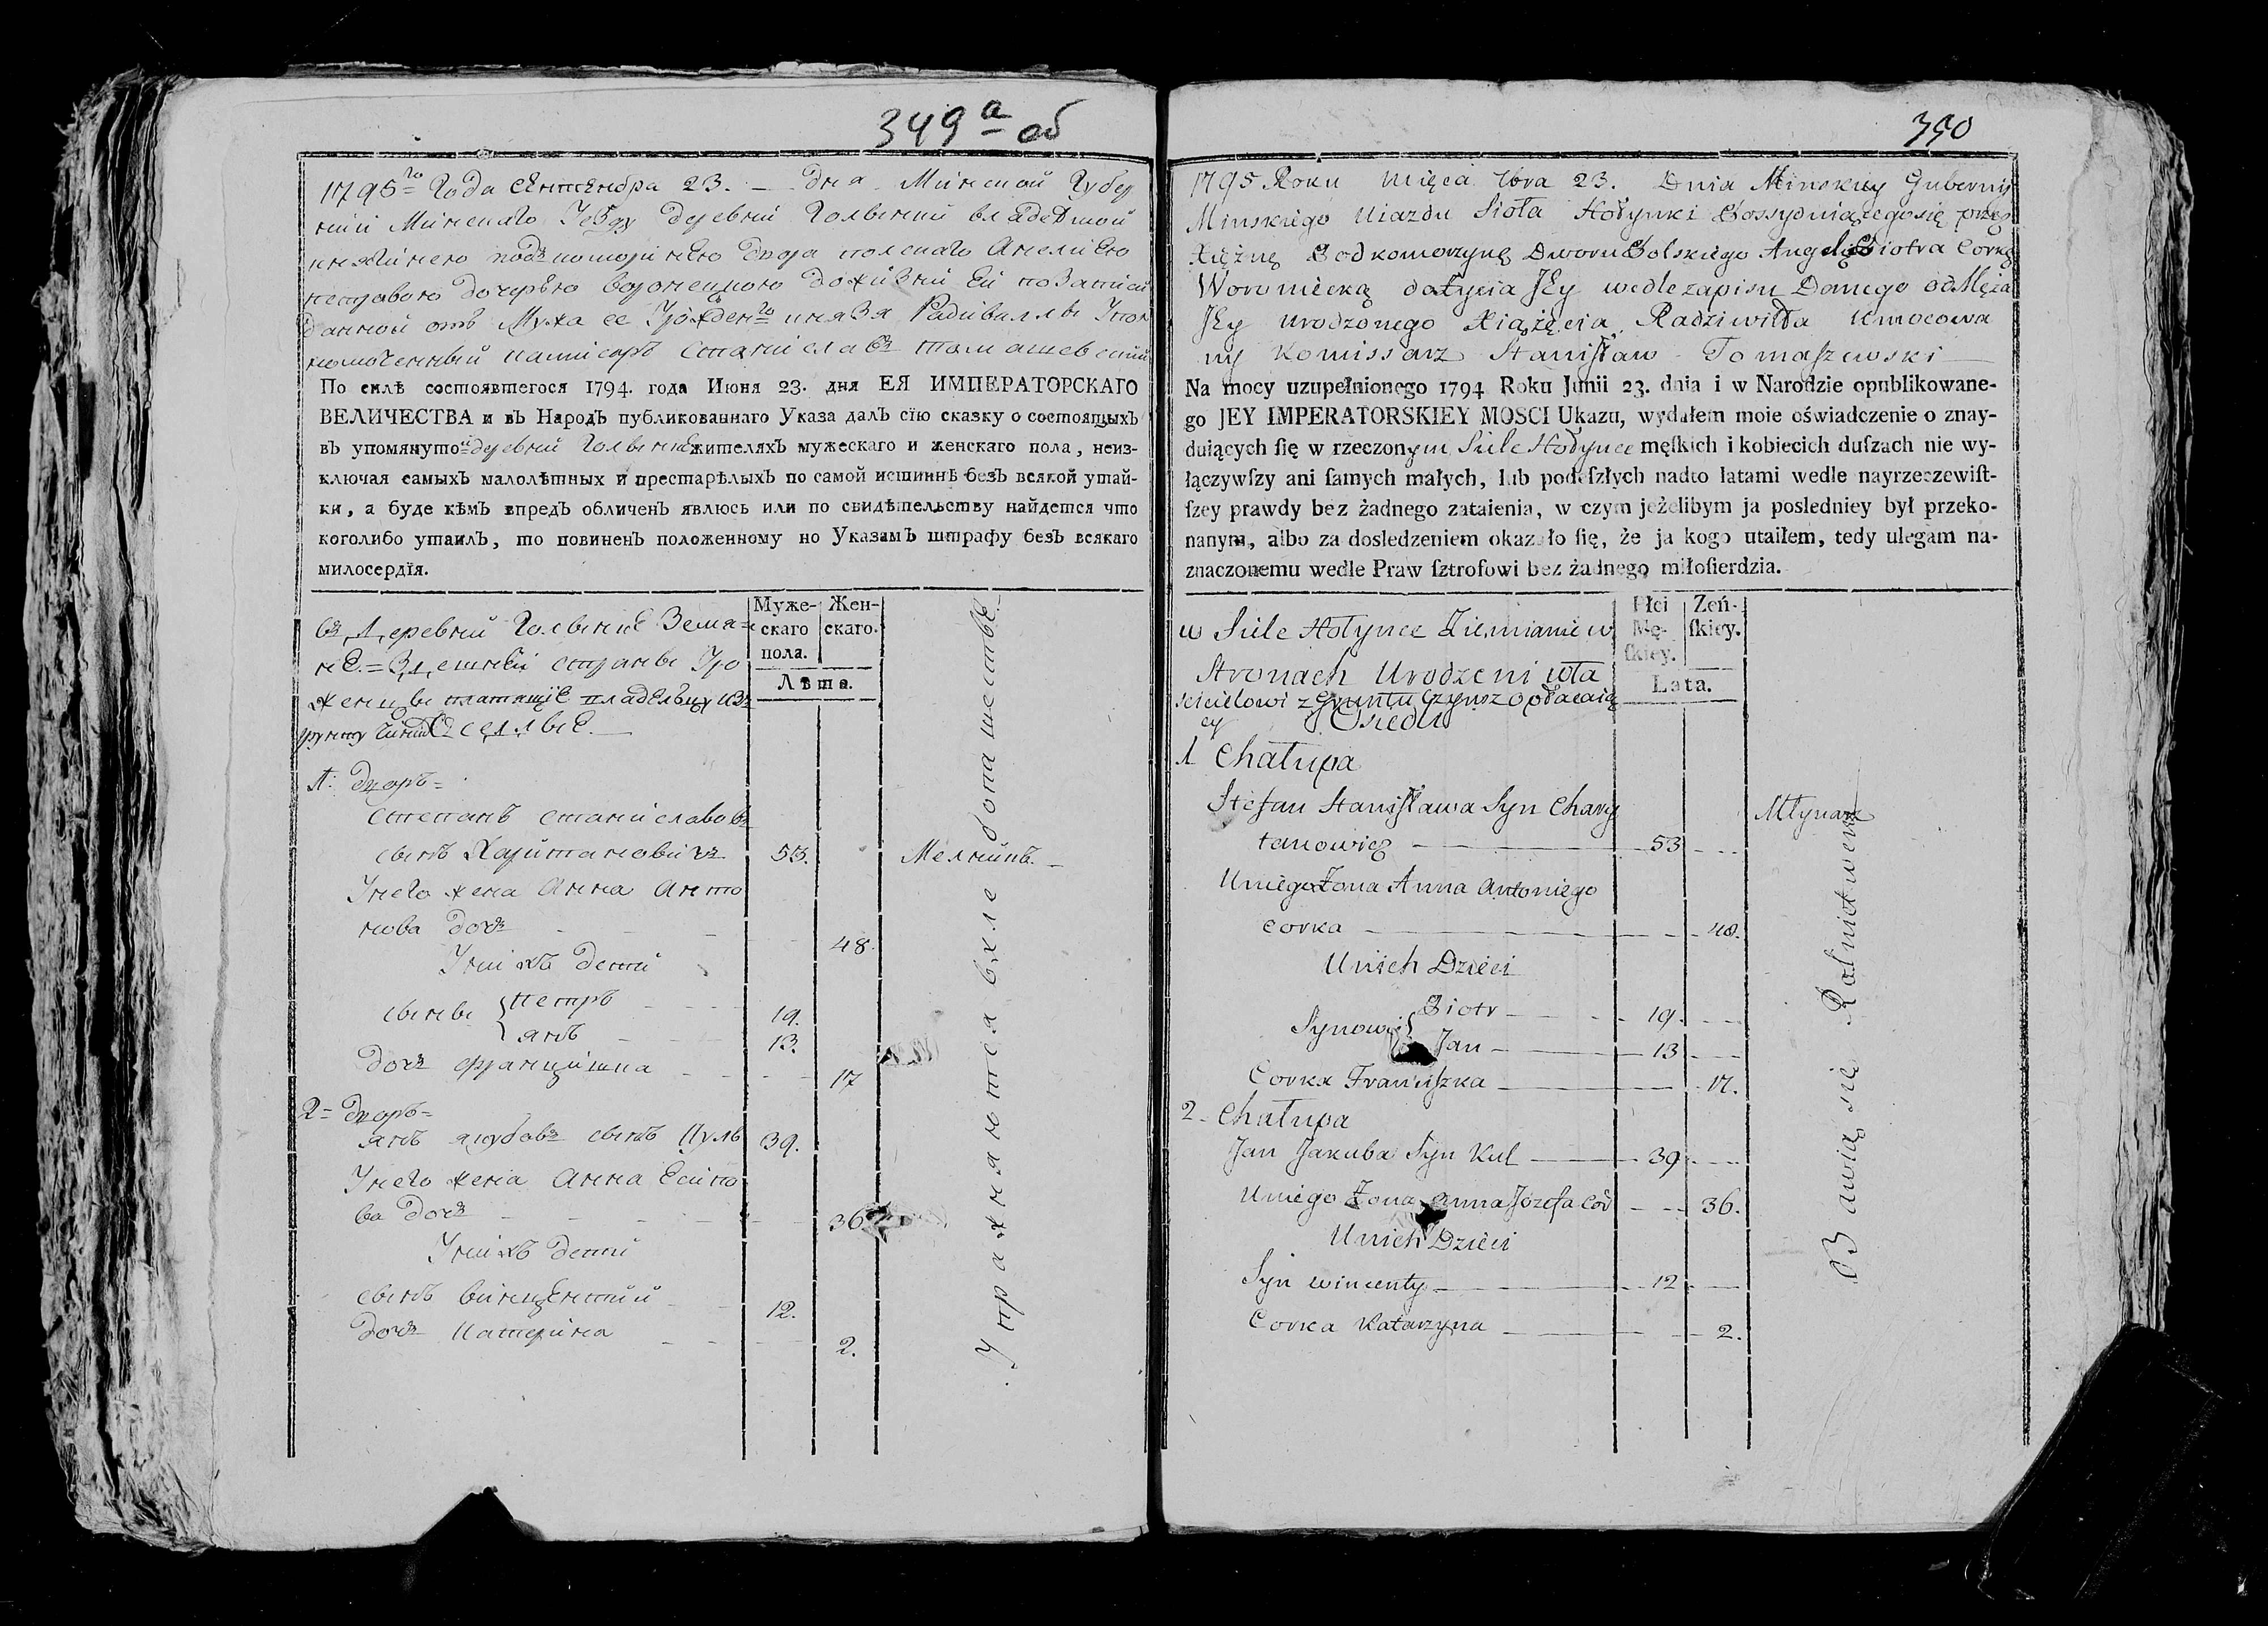 349 а об
1795го Года сентебра 23. — дня Минской Губер
нии Минскаго уезду деревни Голынки владеемой
княгинею подкоморинею двора полскаго Анелиею
петровою дочерью воронецкою дожизни Ей по записи
данной отъ Мужа ее урожденго князя Радивиллы упол
номоченный каммисаръ станиславъ томашевский
По силѣ состоявшегося 1794. года Июня 23. дня ЕЯ ИМПЕРАТОРСКАГО
ВЕЛИЧЕСТВА и въ Народъ публикованнаго Указа далъ сїю сказку о состоящыхъ
въ упомянутой деревни Голынке жителяхъ мужескаго и женскаго пола, неиз-
ключая самыхъ малолѣтныхъ и престарѣлыхъ по самой истиннѣ безъ всякой утай-
ки, а буде кѣмъ впредъ обличенъ явлюсь или по свидѣтельству найдется что
коголибо утаилъ, то повиненъ положенному но Указамъ штрафу безъ всякаго
милосердїя.
Муже-
скаго
пола.
Жен-
скаго.
Лѣта.
въ Деревни Голынке Земя=
не = Здешней страны Уро
женцы платящие владельцу изъ
грунту чиншъ Оселые —
1: Дворъ =
степанъ станиславовъ
сынъ Харитановичъ 53. Мелникъ —
Унего жена Анна Анто
нова дочъ 48.
Унихъ дети
сыны { петръ 19.
янъ 13.
дочъ францишка 17
2 = Дворъ =
янъ якубовъ сынъ Куль 39.
Унего жена Анна Есипо
ва дочъ 36
Унихъ дети
сынъ винцентий 12.
дочъ катерина 2.
Упражняются вхле бопашестве
350
1795 Roku Mięca 7bra 23. Dnia Minskiey Guberny
Minskiego Uiazdu Sioła Hołynki Possyduiącegosię przez
Xiężnę Podkomorzynę Dworu Polskiego Angelę Piotra Corkę
Woroniecką dożycia Jey wedle zapisu Danego od Męża
Jey Urodzonego Xiążęcia Radziwiłła Umocowa
ny Komissarz Stanisław Tomaszewski
Na mocy uzupełnionego 1794 Roku Junii 23. dnia i w Narodzie opublikowane-
go JEY IMPERATORSKIEY MOSCI Ukazu, wydałem moie oświadczenie o znay-
duiących ſię w rzeczonym Siele Hołynce męſkich i kobiecich duſzach nie wy-
łączywſzy ani ſamych małych, lub podeſzłych nadto latami wedle nayrzeczewiſt-
ſzey prawdy bez żadnego zataienia, w czym jeżelibym ja posledniey był przeko-
nanym, albo za dosledzeniem okazało ſię, że ja kogo utaiłem, tedy ulegam na-
znaczonemu wedle Praw ſztrofowi bez żadnego miłoſierdzia.
Płci
Mę-
ſkiey.
Żeń-
ſkiey.
Lata.
w Siele Hołynce Ziemianie w
Stronach Urodzeni wła
scicielowi z gruntu Czynsz opłacaią
cy Osiedli
1 Chałupa
Stefan Stanisława Syn Chary
tanowicz 53 Młynarz
Uniego Żona Anna Antoniego
Corka 48.
Unich Dzieci
Synowie { Piotr 19.
Jan 13
Corka Franciszka 17.
2 - Chałupa
Jan Jakuba Syn Kul 39
Uniego Żona Anna Józefa Cor 36.
Unich Dzieci
Syn Wincenty 12
Corka Katarzyna 2.
Bawią się Rolnictwem